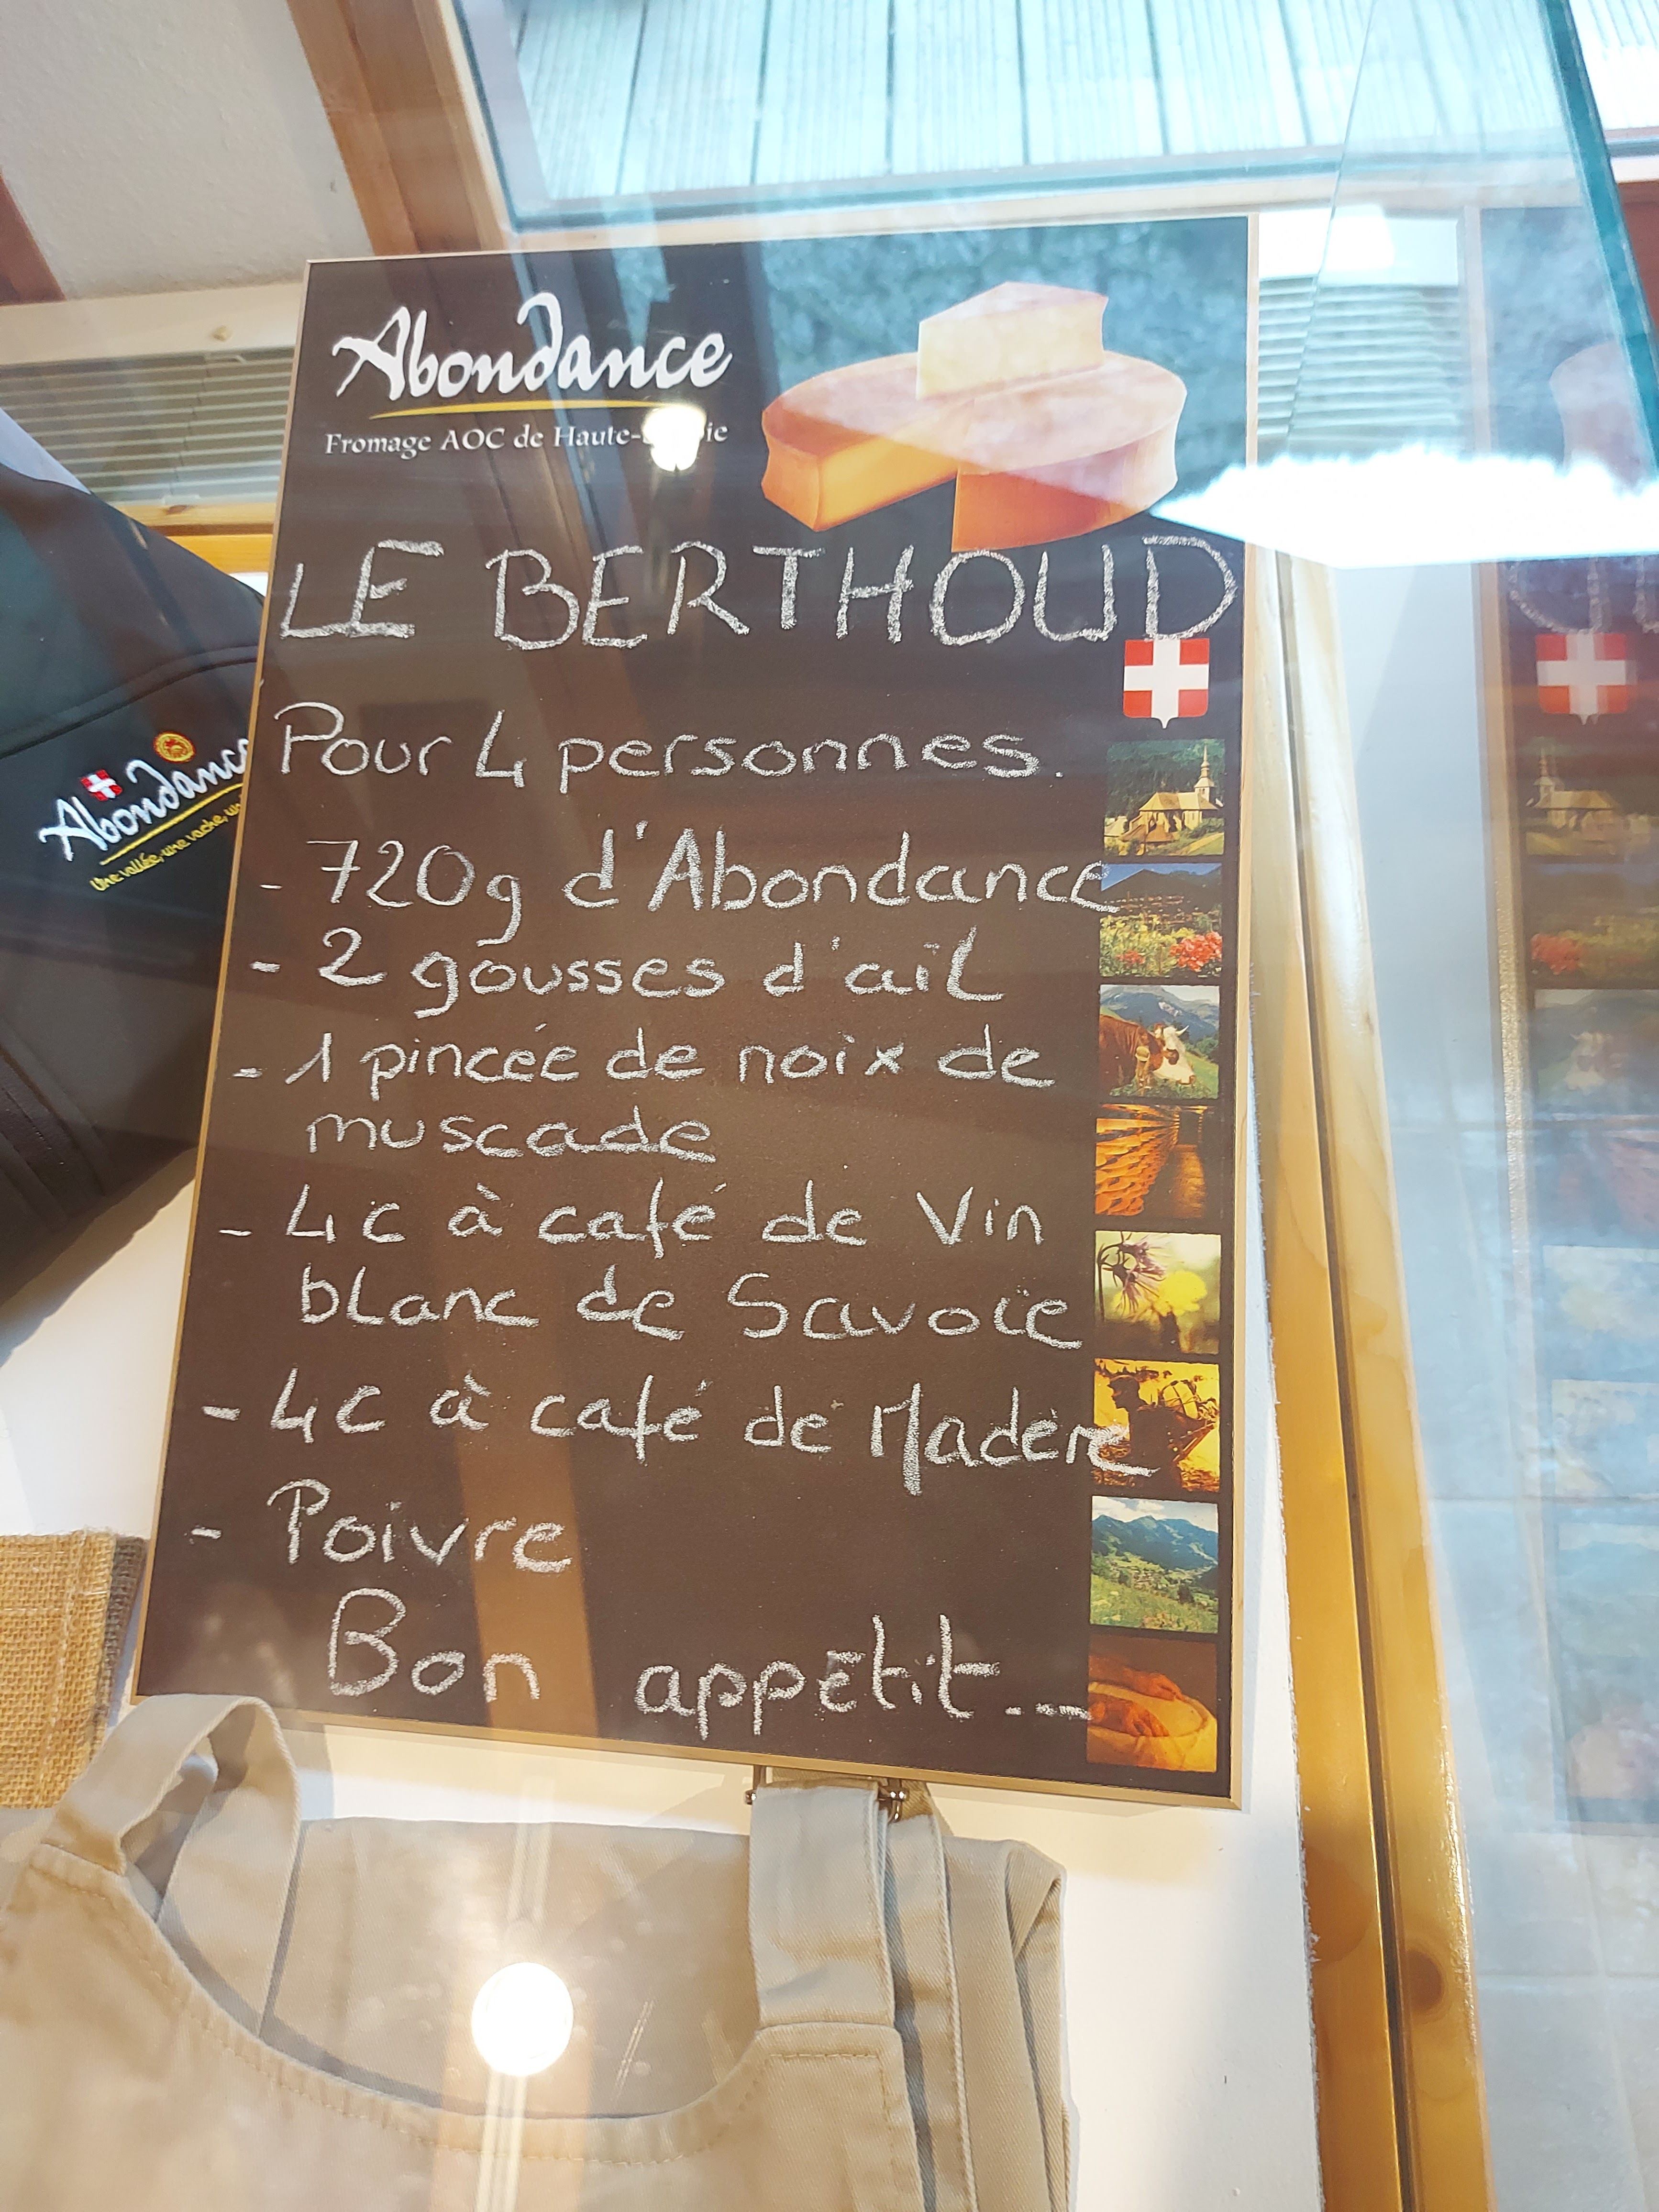 Abondance
Fromage AOC de Haute-
LE BERTHOUD
Pour 4 personnes.
- 720g d'Abondance
- 2 gousses d'ail
- 1 pincée de noix de
muscade
- 4c à café de Vin
blanc de Savoie
- 4c à café de Madère
- Poivre
Bon appétit...
Abondance
Une vallée, une vache, un